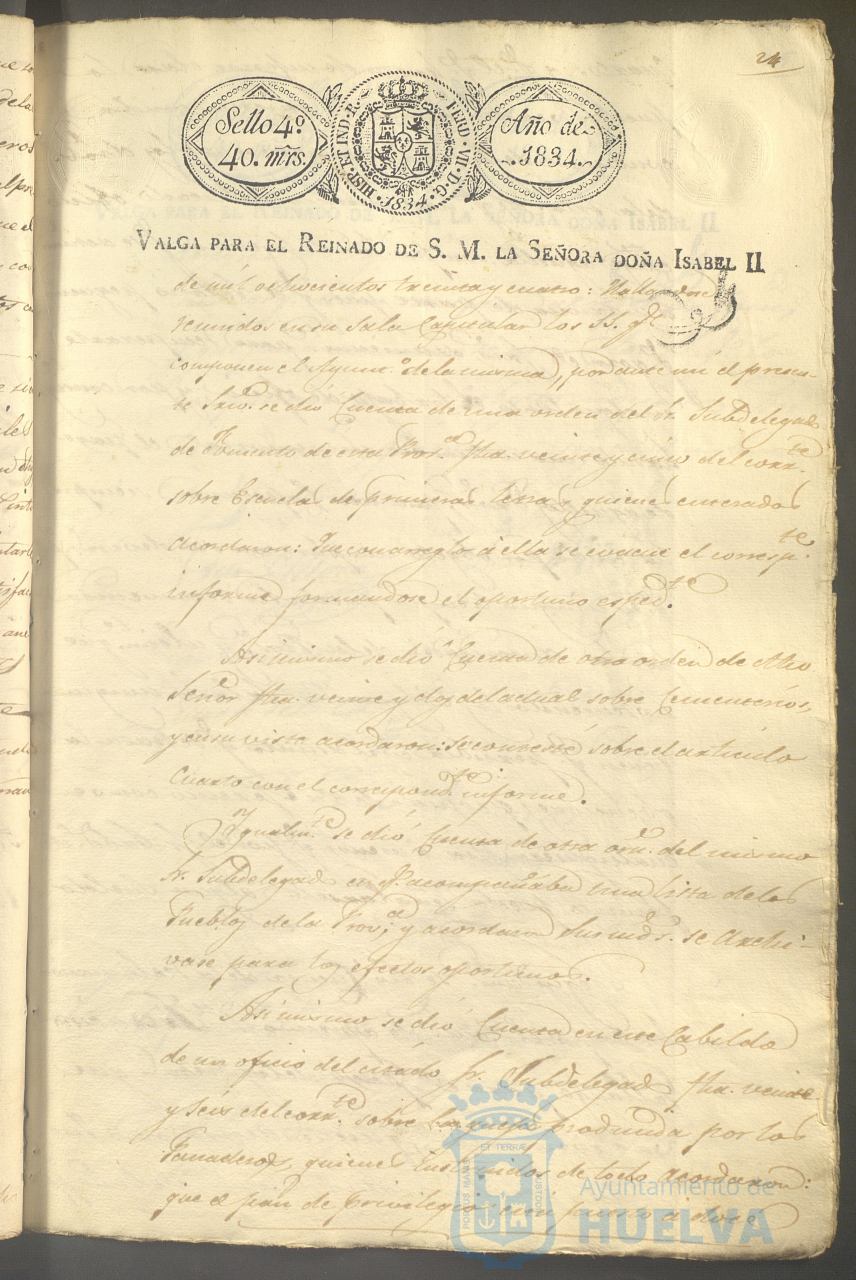 24
Sello 4º
40. mrs.
HISP. ET IND. R. FERD. VII. D. G.
1834
Año de
1834.
VALGA PARA EL REINADO DE S. M. LA SEÑORA DOÑA ISABEL II
de mil ochocientos treinta y cuatro: Hallandose
reunidos en su Sala Capitular los SS. qe.
componen el Ayunt.º de la misma, por ante mi el presen-
te Srio. se dió Cuenta de una orden del Sr. Subdelegado
de Fomento de esta Prov.a fha. veinte y cinco del corr.te
sobre Escuelas de primeras letras, quienes enterados
acordaron: Que con arreglo á ella se evacue el corresp.te
informe formandose el oportuno exped.te
Asimismo se dió Cuenta de otra orden de dho
Señor fha. veinte y dos del actual sobre Cementerios,
y en su vista acordaron: se conteste sobre el articulo
Cuarto con el correspond.te informe.
Igualm.te se dió Cuenta de otra orn. del mismo
Sr. Subdelegado en q.e acompañaba una lista de los
Pueblos de la Prov.a, y acordaron Sus mds. se Archi-
vase para los efectos oportunos.
Asimismo se dió Cuenta en este Cabildo
de un oficio del citado Sr. Subdelegado fha. veinte
y seis del corr.te sobre la queja producida por los
Panaderos, quienes instruidos de todo acordaron:
que el pan de Privilegio
PORTUS MARIS ET TERRAE CUSTODIA
Ayuntamiento de
HUELVA